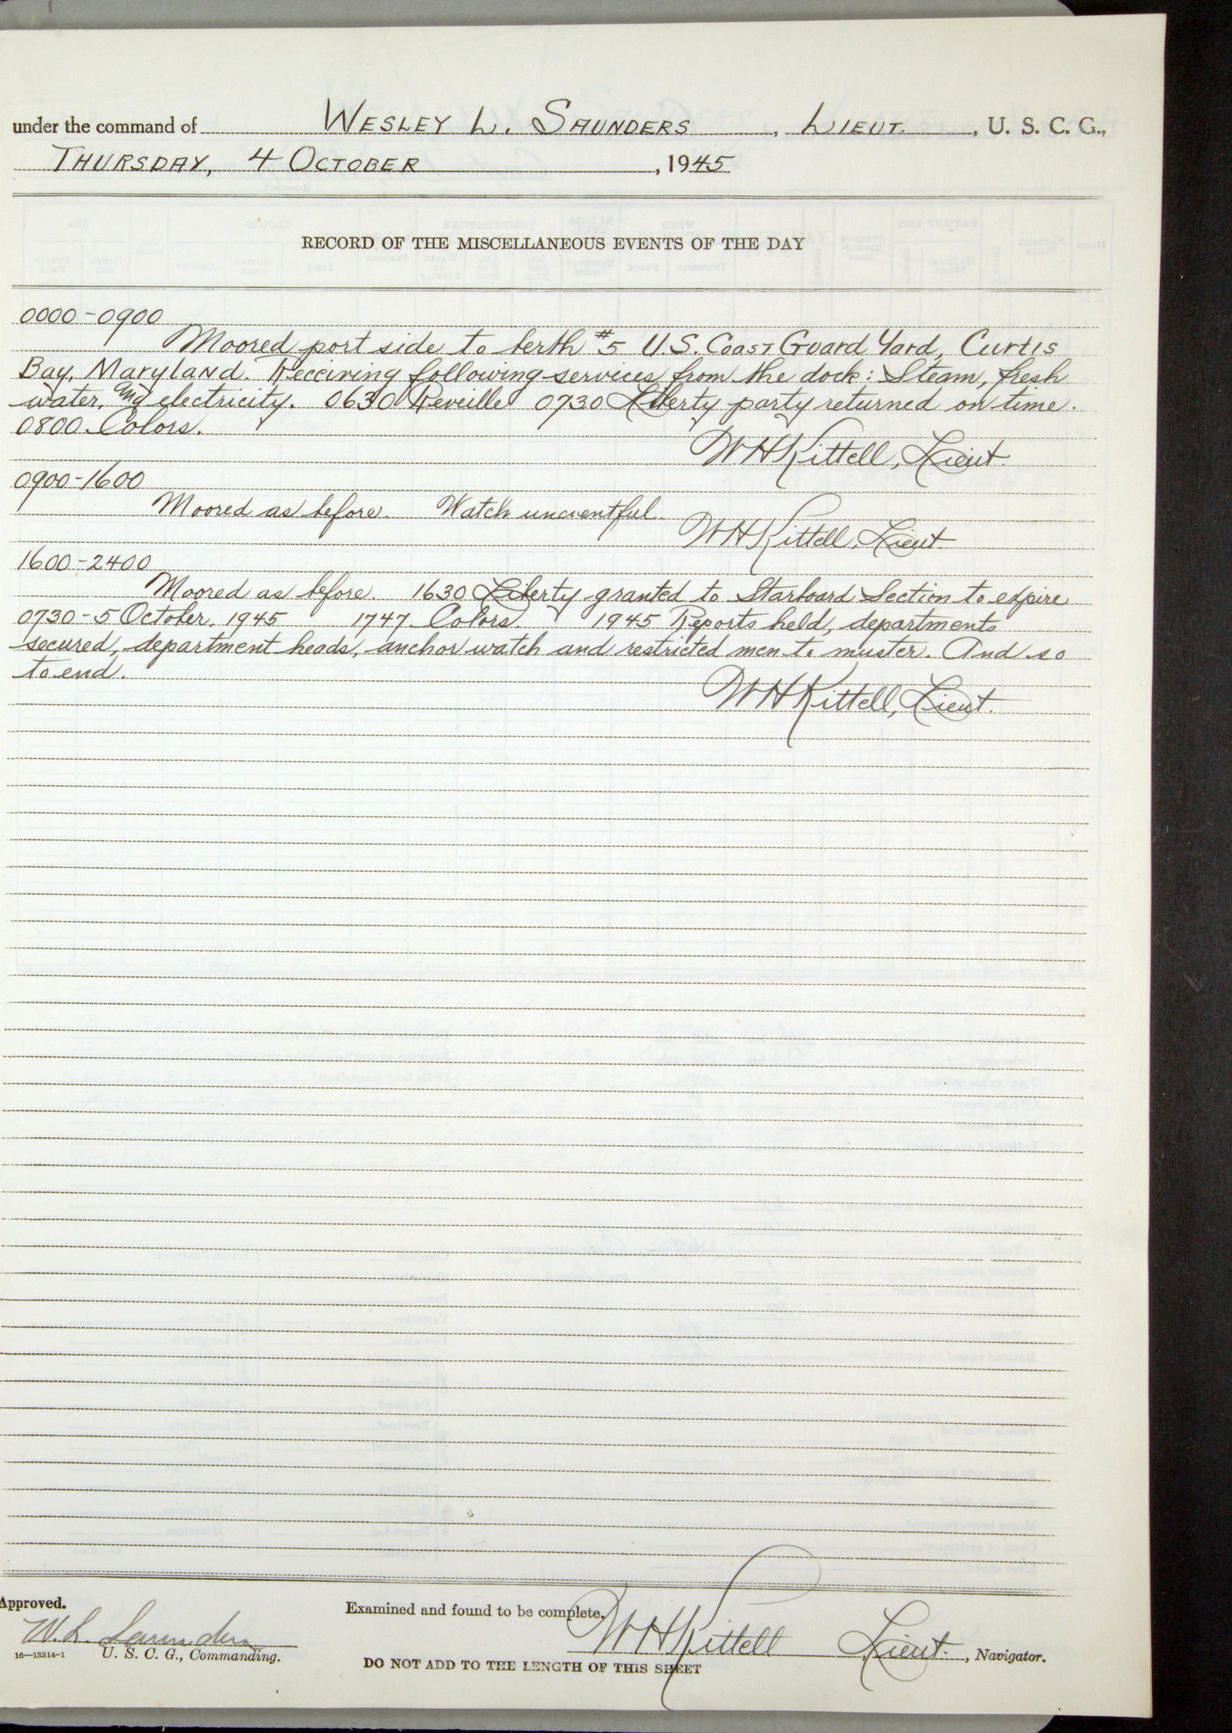 under the command of WESLEY L. SAUNDERS, LIEUT., U. S. C. G.,
THURSDAY, 4 OCTOBER, 1945
RECORD OF THE MISCELLANEOUS EVENTS OF THE DAY
0000-0900
Moored port side to berth #5 U.S. Coast Guard Yard, Curtis
Bay, Maryland. Receiving following services from the dock: Steam, fresh
water, and electricity. 0630 Reveille 0730 Liberty party returned on time.
0800 Colors.
W H Kittell, Lieut.
0900-1600
Moored as before. Watch uneventful.
W H Kittell, Lieut.
1600-2400
Moored as before. 1630 Liberty granted to Starboard Section to expire
0730-5 October, 1945 1747 Colors. 1945 Reports held, departments
secured, department heads, anchor watch and restricted men to muster. And so
to end.
W H Kittell, Lieut.
Approved.
Examined and found to be complete.
W. L. Saunders
W H Kittell Lieut., Navigator.
16—13314-1 U. S. C. G., Commanding.
DO NOT ADD TO THE LENGTH OF THIS SHEET